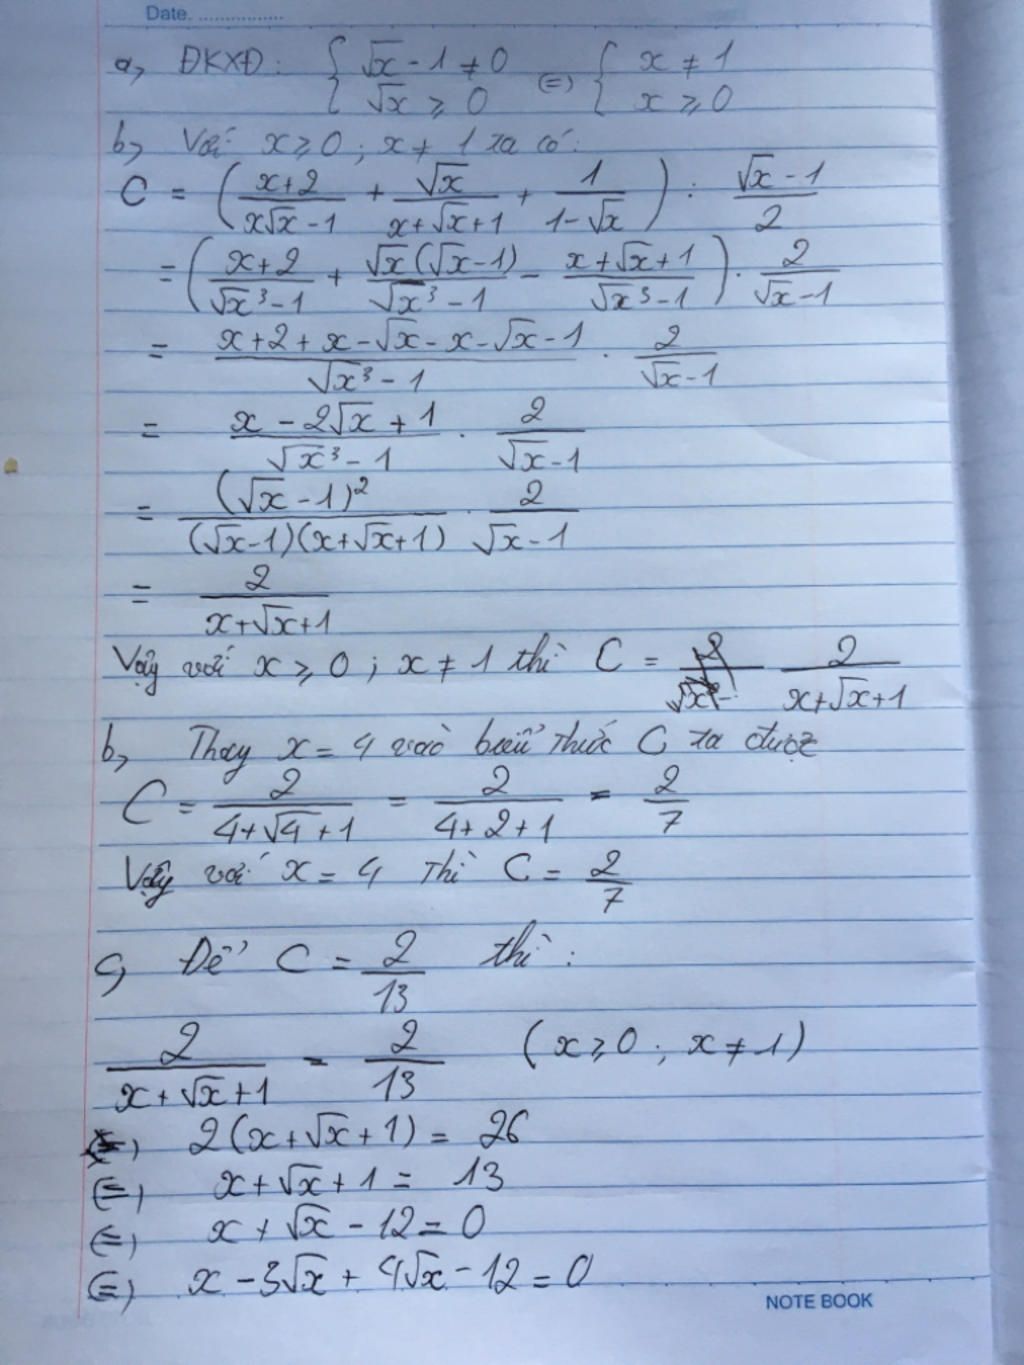 Date. ................
a, ĐKXĐ: { √x - 1 ≠ 0 (=) { x ≠ 1
√x ≥ 0 x ≥ 0
b, Với x ≥ 0 ; x ≠ 1 ta có:
C = ( (x+2)/(x√x - 1) + √x/(x+√x+1) + 1/(1-√x) ) : (√x - 1)/2
= ( (x+2)/(√x³ - 1) + √x(√x-1)/(√x³ - 1) - (x+√x+1)/(√x³-1) ) . 2/(√x-1)
= (x+2+x-√x-x-√x-1)/(√x³ - 1) . 2/(√x-1)
= (x - 2√x + 1)/(√x³ - 1) . 2/(√x-1)
= (√x - 1)²/((√x-1)(x+√x+1)) . 2/(√x-1)
= 2/(x+√x+1)
Vậy với x ≥ 0 ; x ≠ 1 thì C = 2/(x+√x+1)
b, Thay x = 4 vào biểu thức C ta được
C = 2/(4+√4+1) = 2/(4+2+1) = 2/7
Vậy với x = 4 thì C = 2/7
c, Để C = 2/13 thì :
2/(x+√x+1) = 2/13 (x ≥ 0 ; x ≠ 1)
(=) 2(x+√x+1) = 26
(=) x+√x+1 = 13
(=) x + √x - 12 = 0
(=) x - 3√x + 4√x - 12 = 0
NOTE BOOK